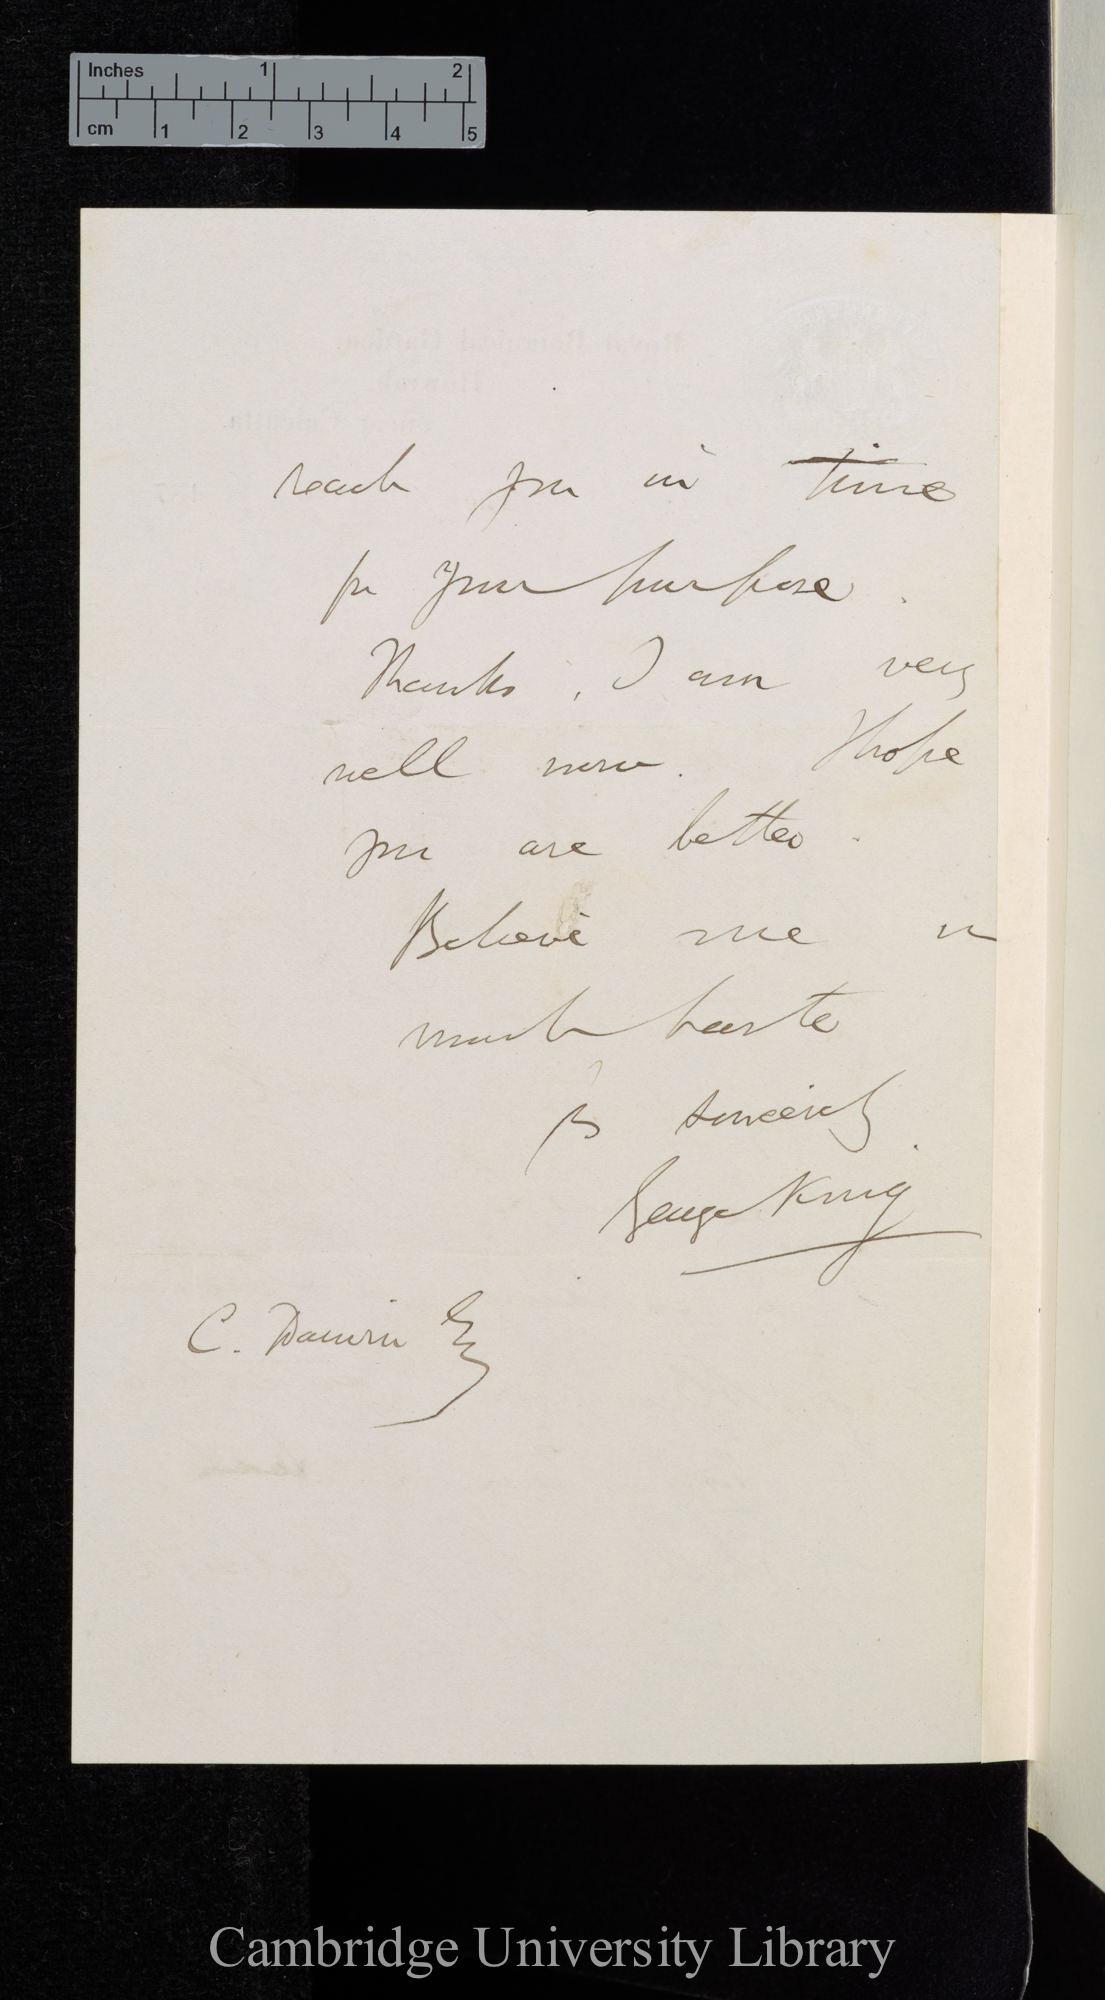 Inches 1 2
cm 1 2 3 4 5
reach you in time
for your purpose.
Thanks, I am very
well now. I hope
you are better.
Believe me in
much haste
Ys sincerely
George King
C. Darwin Esq
Cambridge University Library